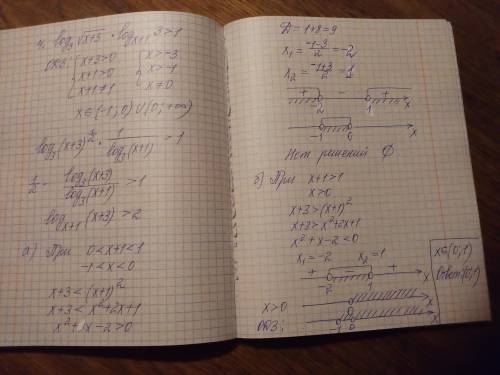 4. log₃√x+3 · log_{x+1} 3 > 1
ОДЗ: { x+3>0 { x>-3
x+1>0 x>-1
x+1≠1 x≠0
x∈(-1; 0) ∪ (0; +∞)
log₃(x+3)^{1/2} · 1/log₃(x+1) > 1
1/2 · log₃(x+3)/log₃(x+1) > 1
log_{x+1}(x+3) > 2
а) При 0<x+1<1
-1<x<0
x+3<(x+1)²
x+3<x²+2x+1
x²+x-2>0
Д=1+8=9
x₁=(-1-3)/2=-2
x₂=(-1+3)/2=1
+ - +
-2 1 x
-1 0 x
Нет решений ∅
б) При x+1>1
x>0
x+3>(x+1)²
x+3>x²+2x+1
x²+x-2<0
x₁=-2 x₂=1
+ - +
-2 1 x
x>0 0 x
ОДЗ: -1 0 x
x∈(0;1)
Ответ:(0;1)